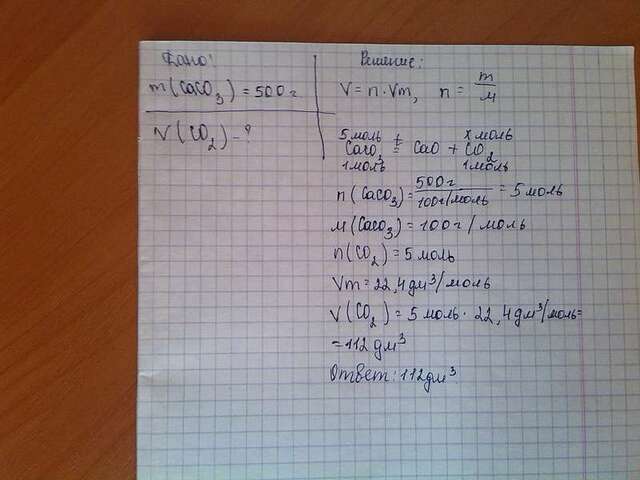 Дано:
m(CaCO3) = 500г
V(CO2) - ?
Решение:
V = n · Vm, n = m/M
5моль t x моль
CaCO3 = CaO + CO2
1моль 1моль
n(CaCO3) = 500г/100г/моль = 5моль
M(CaCO3) = 100г/моль
n(CO2) = 5моль
Vm = 22,4дм³/моль
V(CO2) = 5моль · 22,4дм³/моль =
= 112дм³
Ответ: 112дм³